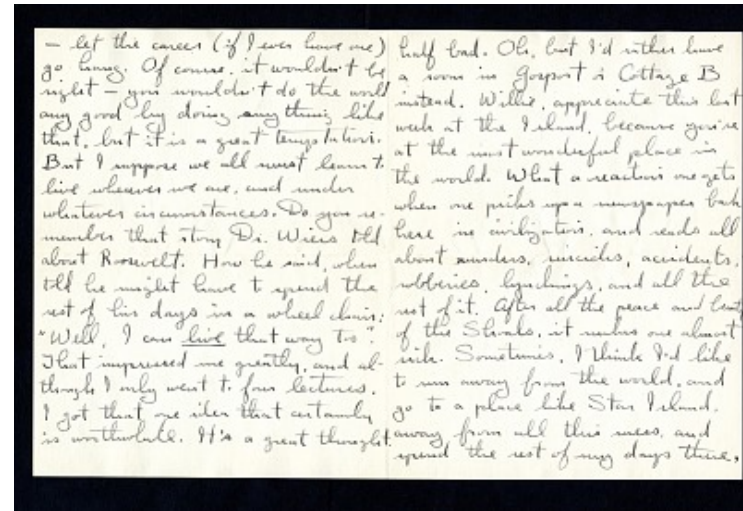 — let the career (if I ever have one)
go hang. Of course, it wouldn't be
right — you wouldn't do the world
any good by doing any thing like
that, but it is a great temptation.
But I suppose we all must learn to
live wherever we are, and under
whatever circumstances. Do you re-
member that story Dr. Wiers told
about Roosevelt. How he said, when
told he might have to spend the
rest of his days in a wheel chair:
"Well, I can live that way too".
That impressed me greatly, and al-
though I only went to four lectures,
I got that one idea that certainly
is worthwhile. It's a great thought.
half bad. Oh, but I'd rather have
a room in Gosport or Cottage B
instead. Willie, appreciate this last
week at the Island, because you're
at the most wonderful place in
the world. What a reaction one gets
when one picks up a newspaper back
here in civilization, and reads all
about murders, suicides, accidents,
robberies, lynchings, and all the
rest of it. After all the peace and
of the Shoals, it makes one almost
sick. Sometimes, I think I'd like
to run away from the world, and
go to a place like Star Island,
away from all this mess, and
spend the rest of my days there,